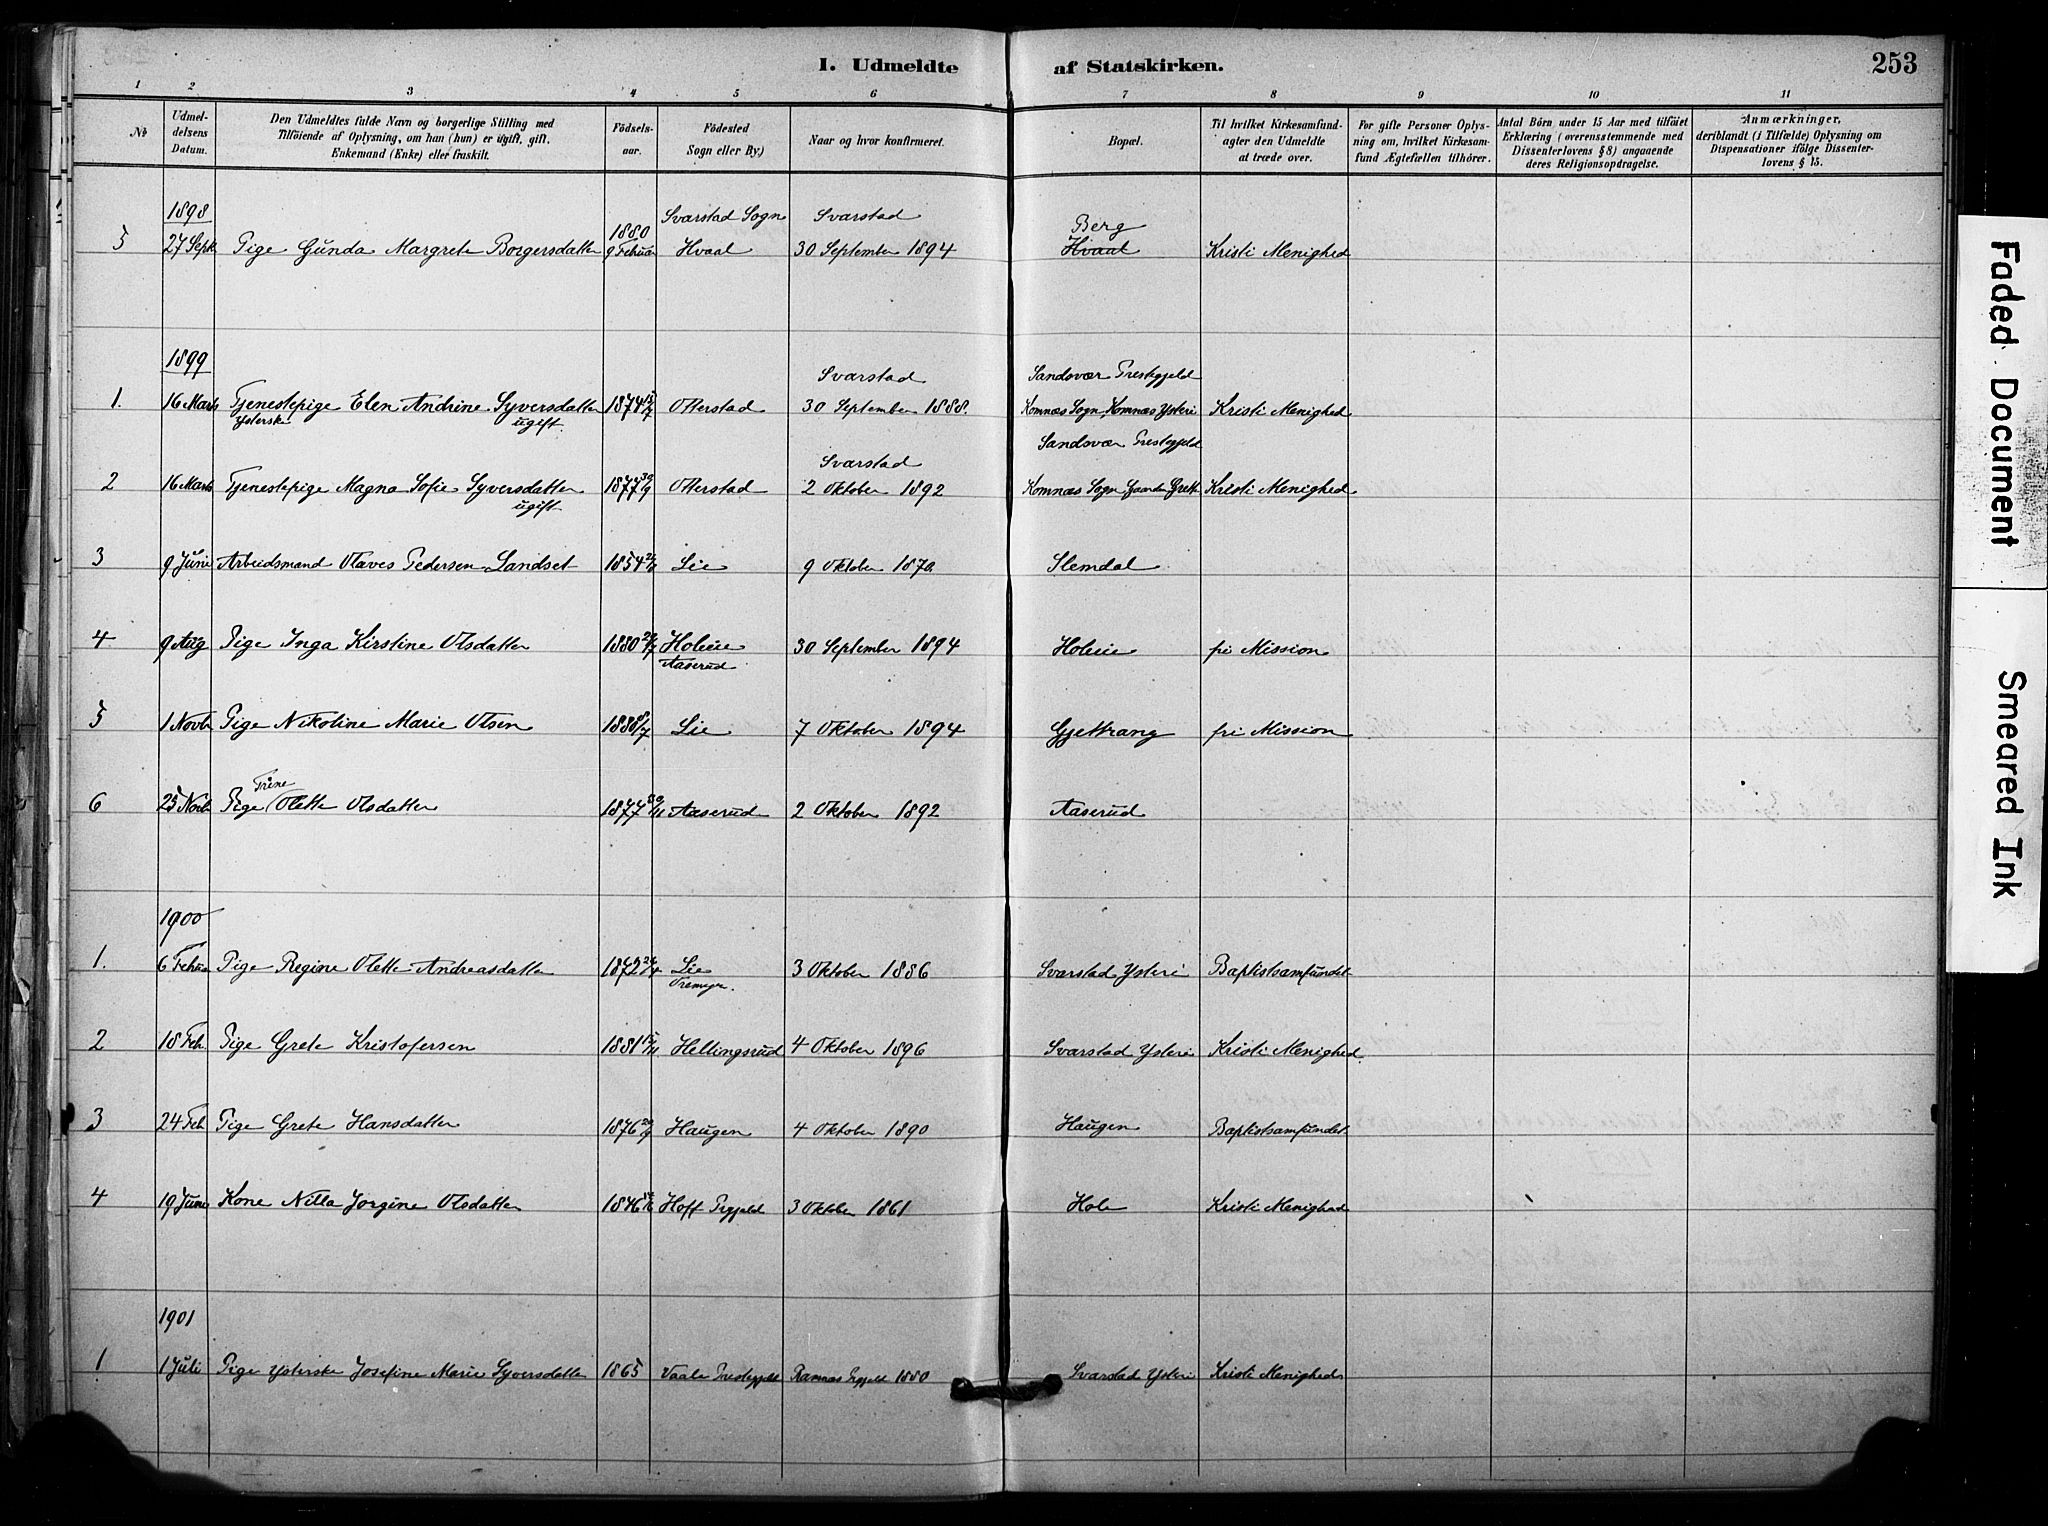 I. Udmeldte af Statskirken. 253
1 2 3 4 5 6 7 8 9 10 11
№
Udmel-
delsens
Datum.
Den Udmeldtes fulde Navn og borgerlige Stilling med
Tilföiende af Oplysning, om han (hun) er ugift, gift,
Enkemand (Enke) eller fraskilt.
Födsels-
aar.
Födested
Sogn eller By;)
Naar og hvor konfirmeret.
Bopæl.
Til hvilket Kirkesamfund-
agter den Udmeldte
at træde over.
For gifte Personer Oplys-
ning om, hvilket Kirkesam-
fund Ægtefællen tilhörer.
Antal Börn under 15 Aar med tilföiet
Erklæring (overensstemmende med
Dissenterlovens § 8) angaaende
deres Religionsopdragelse.
Anmærkninger,
deriblandt (i Tilfælde) Oplysning om
Dispensationer ifölge Dissenter-
lovens § 15.
1898 1880 Svarstad Sogn Svarstad Berg
5 27 Sept Pige Gunda Margrete Borgersdatter 9 Februar Hvaal 30 September 1894 Hvaal Kristi Menighed
1899 Svarstad Sandsvær Prestegjeld
1. 16 Marts Tjenestepige Elen Andrine Syversdatter 1874 Otterstad 30 September 1888. Komnæs Sogn, Komnæs Ysteri Kristi Menighed
Ysterske ugift.
Svarstad Sandsvær Prestegjeld
2 16 Marts Tjenestepige Magna Sofie Syversdatter 1877 Otterstad 2 Oktober 1892 Komnæs Sogn Gaarden Kristi Menighed
ugift
3 9 Juni Arbeidsmand Olaves Pedersen Landset 1854 Lie 9 Oktober 1870. Slemdal
4 9 Aug Pige Inga Kirstine Olsdatter 1880 Holeie 30 September 1894 Holeie fri Mission
Aaserud
5 1 Novb Pige Nikoline Marie Olsen Lie 7 Oktober 1894 Gjettrang fri Mission
Trine
6 25 Novb Pige Olette Olsdatter 1877 Aaserud 2 Oktober 1892 Aaserud
1900
1. 6 Februar Pige Regine Olette Andreasdatter 1872 Lie 3 Oktober 1886 Svarstad Ysteri Baptistsamfundet
2 18 Feb. Pige Grete Kristofersen 1881 Hellingsrud 4 Oktober 1896 Svarstad Ysteri Kristi Menighed
3 24 Feb Pige Grete Hansdatter 1876 Haugen 4 Oktober 1890 Haugen Baptistsamfundet
4 19 Juni Kone Nilla Jorgine Olsdatter 1846 Hoff Prgjeld 3 Oktober 1861 Hole Kristi Menighed
1901
1 1 Juli Pige Ysterske Josefine Marie Syversdatter 1865 Vaale Prestegjeld Ramnæs Prgjeld 1880 Svarstad Ysteri Kristi Menighed
Faded Document
Smeared Ink